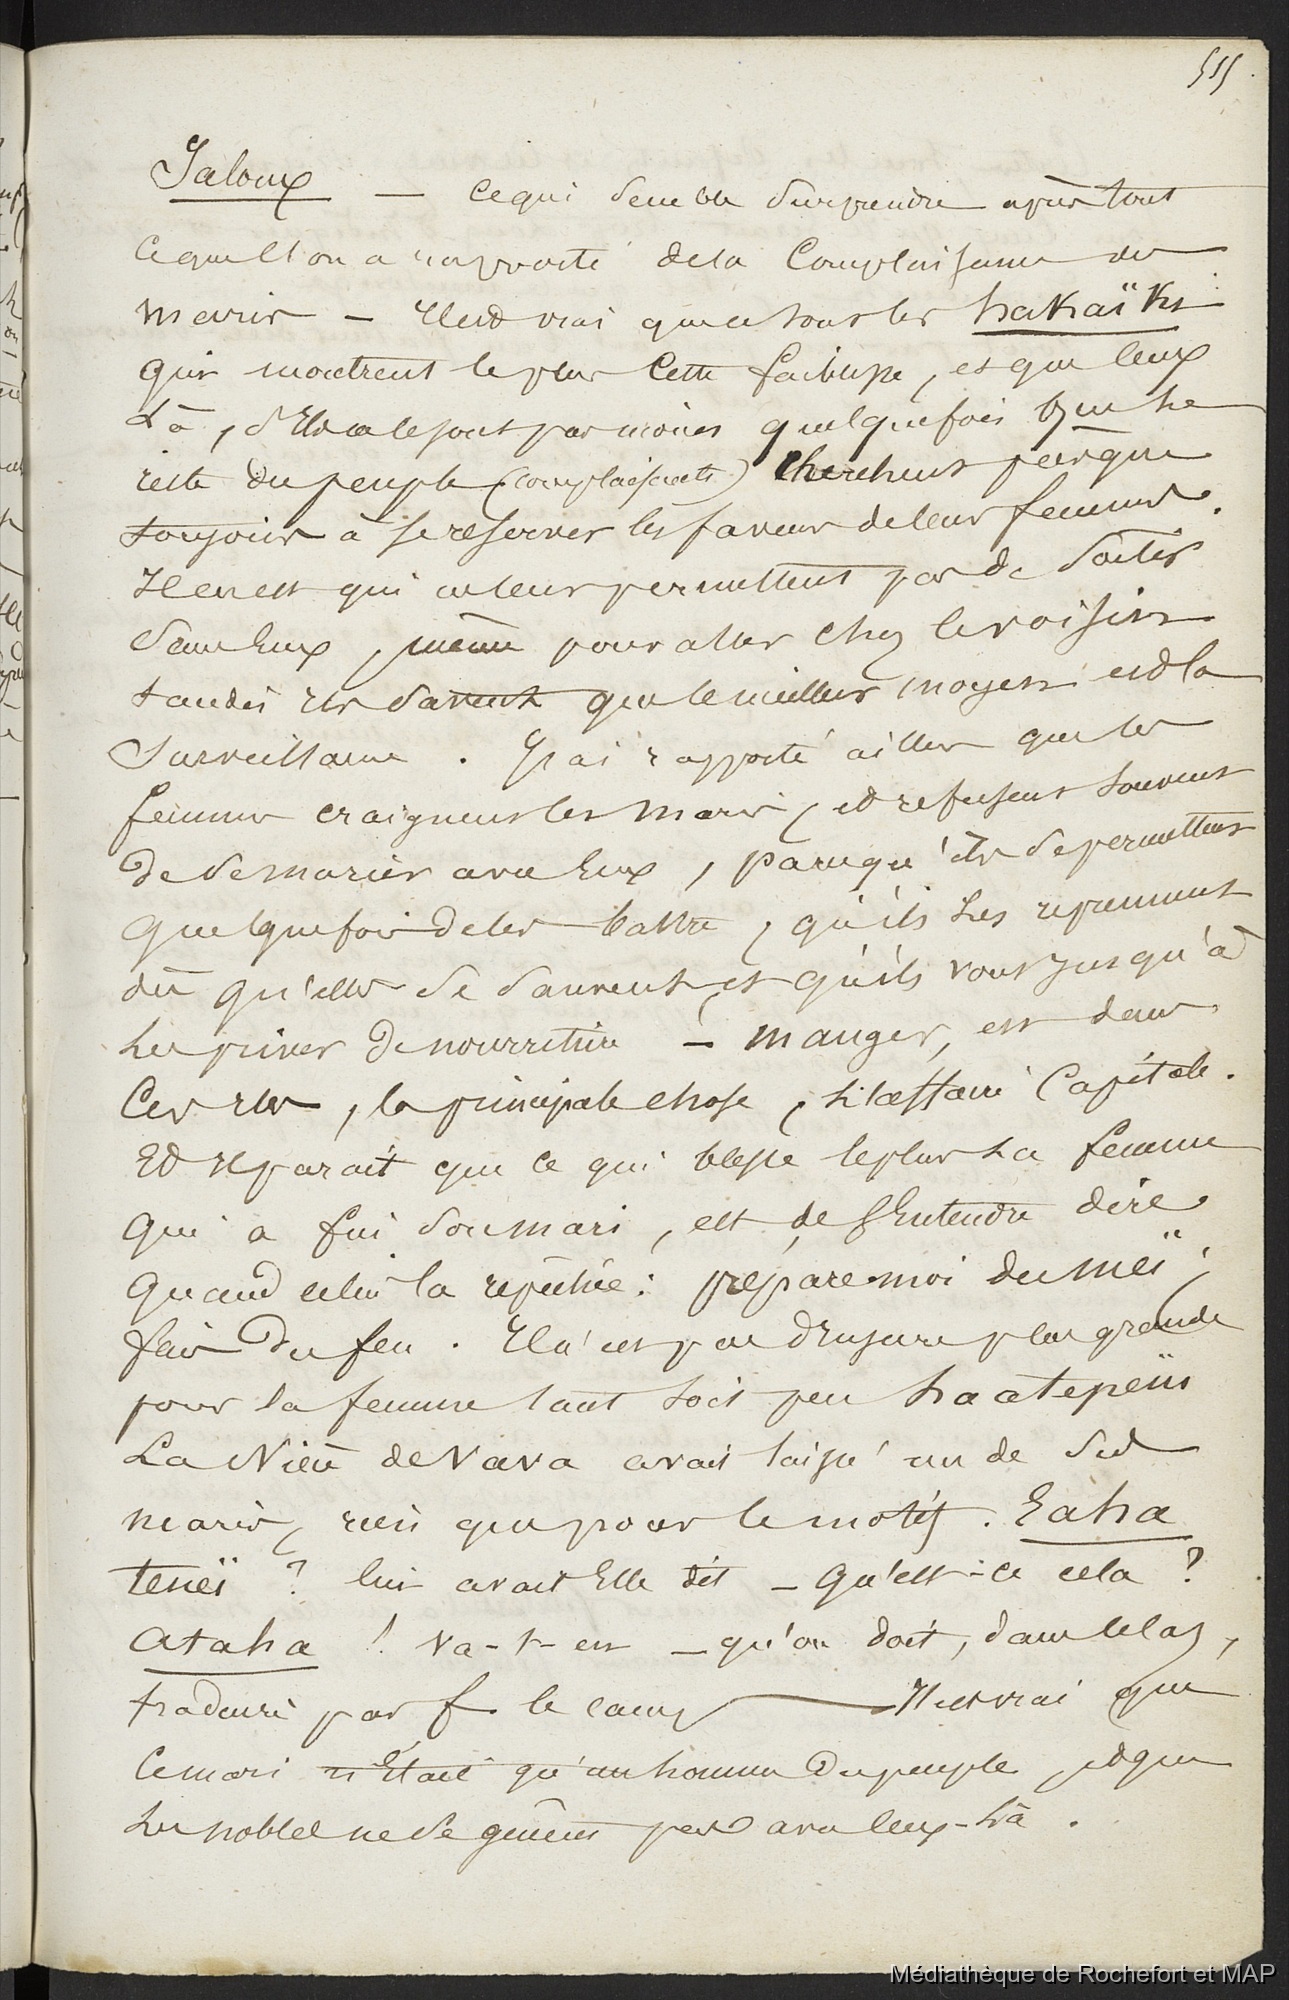 515
Jaloux — ce qui semble surprendre après tout
ce que l'on a rapporté de la Complaisance des
maris — Il est vrai que ce sont les hakaïkis
qui montrent le plus Cette faiblesse, et que ceux
là, s'ils ne le sont pas moins quelquefois que le
reste du peuple (complaisants) cherchent presque
toujours à se réserver les faveurs de leurs femmes.
Il en est qui ne leur permettent pas de sortir
sans Eux, même pour aller chez le voisin
tandis ils savent que le meilleur moyen est la
surveillance. J'ai rapporté ailleurs que les
femmes craignent les maris, et refusent souvent
de se marier avec Eux, parcequ'ils se permettent
quelquefois de les battre, qu'ils les reprennent
dès qu'elles se sauvent et qu'ils vont jusqu'à
les priver de nourriture — manger, est dans
Ces iles, la principale chose, l'affaire Capitale.
Et il parait que ce qui blesse le plus la femme
qui a fui son mari, est de s'Entendre dire
quand celui la repêchée: prépare-moi du meï;
fais du feu. Il n'est pas d'Injure plus grande
pour la femme tant soit peu haatepeiu
La Nièce de Vava avait laissé un de ses
maris, rien que pour le motif. Eaha
teneï? lui avait Elle dit — Qu'est-ce cela?
Ataha! va-t-en — qu'on doit, dans le cas,
traduire par f. le camp — Il est vrai que
le mari n'Etait qu'un homme du peuple, et que
les nobles ne se gênent pas avec ceux-là.
Médiathèque de Rochefort et MAP